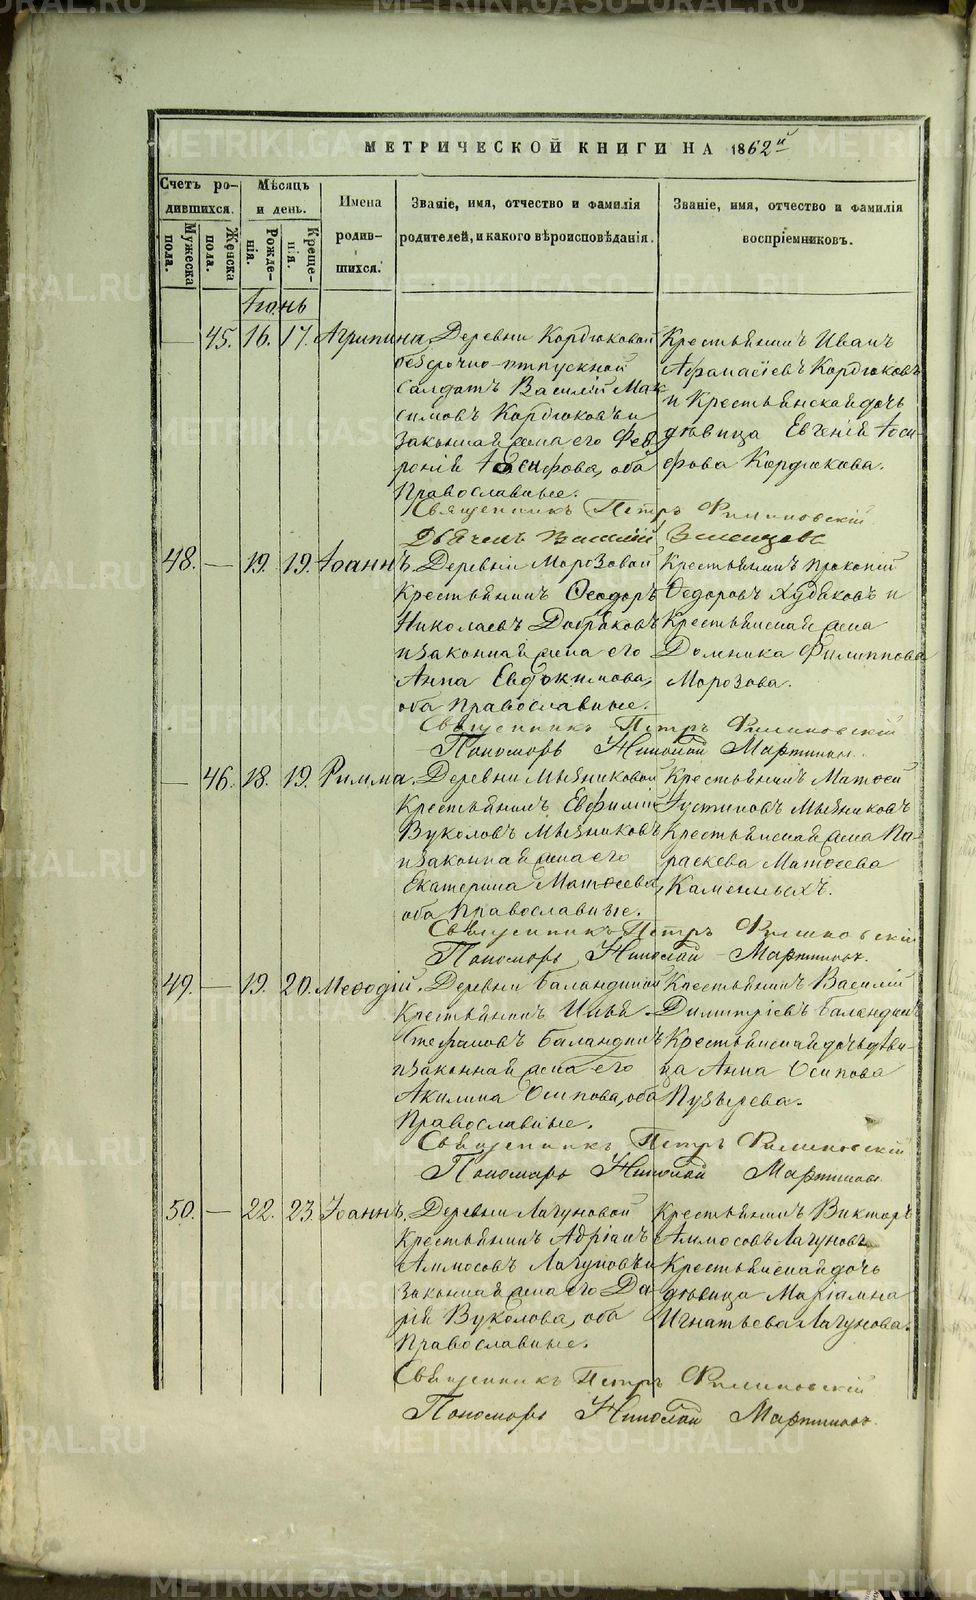 МЕТРИЧЕСКОЙ КНИГИ НА 1862й
Счетъ родившихся.
Мужеска пола.
Женска пола.
Мѣсяцъ и день.
Рожденія.
Крещенія.
Имена родившихся.
Званіе, имя, отчество и фамилія родителей, и какого вѣроисповѣданія.
Званіе, имя, отчество и фамилія воспріемниковъ.
Іюнь
— 45. 16. 17. Агрипина,
Деревни Кордюковой
безсрочно-отпускной
Салдатъ Василій Мак
симовъ Кордюковъ и
законная жена его Фев
ронія Іосифова, оба
Православные.
Крестьянинъ Иванъ
Афанасіевъ Кордюковъ
и Крестьянская дочь
дѣвица Евгенія Іоси-
фова Кордюкова.
Священникъ Петръ Филиповскій
Дьячекъ Василій
48. — 19. 19. Іоаннъ.
Деревни Морозовой
Крестьянинъ Ѳеодоръ
Николаевъ
и законная жена его
Анна Евдокимова,
оба Православные.
Крестьянинъ Прокопій
Ѳедоровъ Худяковъ и
Крестьянская жена
Домника Филиппова
Морозова.
Священникъ Петръ Филиповскій
Пономарь Николай
— 46. 18. 19. Римма.
Деревни Мызниковой
Крестьянинъ Евфимій
Вуколовъ Мызниковъ
и законная жена его
Екатерина Матѳеева,
оба Православные.
Крестьянинъ Матѳей
Устиновъ Мызниковъ
Крестьянская жена Па-
раскева Матѳеева
Каменныхъ.
Священникъ Петръ Филиповскій
Пономарь Николай
49. — 19. 20. Меѳодій.
Деревни Баландиной
Крестьянинъ Илья
Стефановъ Баландинъ
и законная жена его
Акилина Осипова, оба
Православные.
Крестьянинъ Василій
Димитріевъ Баландинъ
Крестьянская дочь дѣви-
ца Анна Осипова
Пузырева.
Священникъ Петръ Филиповскій
Пономарь Николай
50. — 22. 23. Іоаннъ.
Деревни Лагуновой
Крестьянинъ Адріанъ
Аммосовъ Лагуновъ и
законная жена его Да
рія Вуколова, оба
Православные.
Крестьянинъ Викторъ
Аммосовъ Лагуновъ
Крестьянская дочь
дѣвица Маріамна
Игнатьева Лагунова.
Священникъ Петръ Филиповскій
Пономарь Николай
METRIKI.GASO-URAL.RU